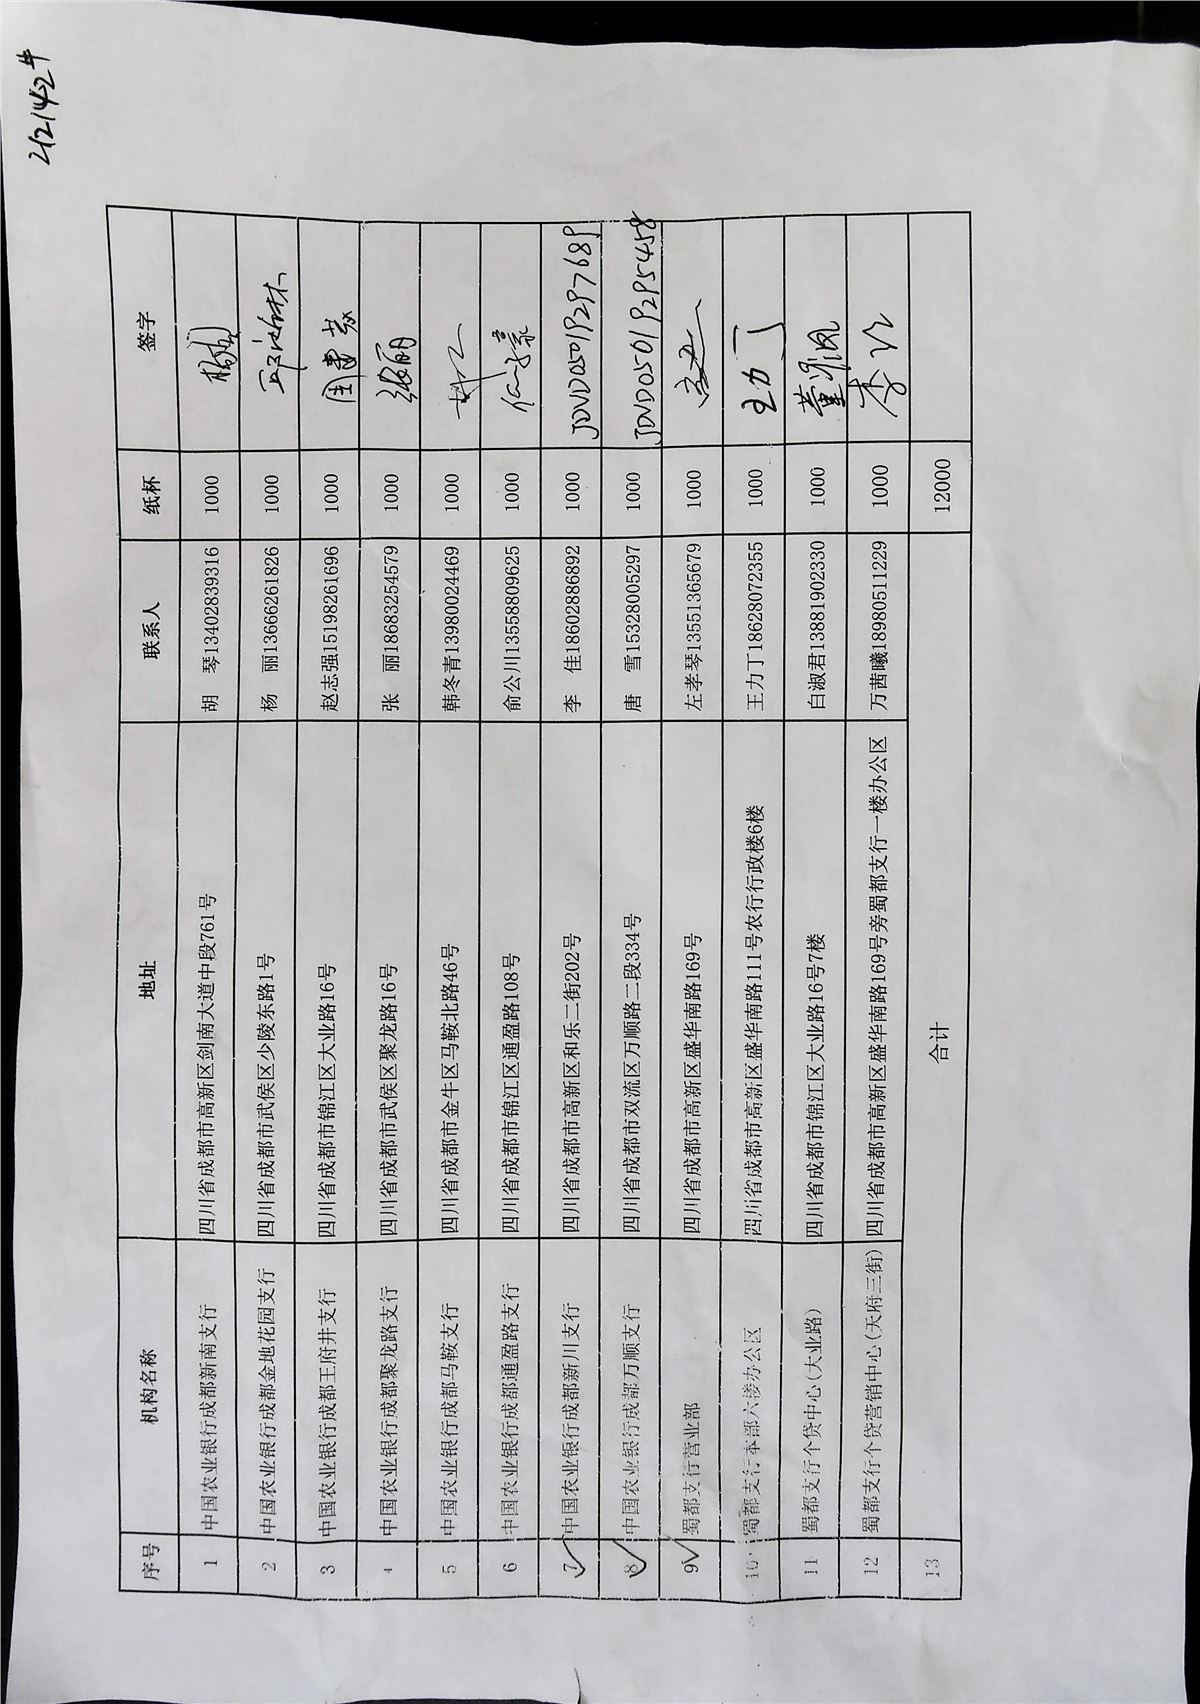 212142#
序号 机构名称 地址 联系人 纸杯 签字
1 中国农业银行成都新南支行 四川省成都市高新区剑南大道中段761号 胡 琴13402839316 1000
2 中国农业银行成都金地花园支行 四川省成都市武侯区少陵东路1号 杨 丽13666261826 1000
3 中国农业银行成都王府井支行 四川省成都市锦江区大业路16号 赵志强15198261696 1000
4 中国农业银行成都聚龙路支行 四川省成都市武侯区聚龙路16号 张 丽18683254579 1000 张丽
5 中国农业银行成都马鞍支行 四川省成都市金牛区马鞍北路46号 韩冬青13980024469 1000
6 中国农业银行成都通盈路支行 四川省成都市锦江区通盈路108号 俞公川13558809625 1000
7 中国农业银行成都新川支行 四川省成都市高新区和乐二街202号 李 佳18602886892 1000 JDVD05019297689
8 中国农业银行成都万顺支行 四川省成都市双流区万顺路二段334号 唐 雪15328005297 1000 JDVD05019295458
9 蜀都支行营业部 四川省成都市高新区盛华南路169号 左孝琴13551365679 1000
10 蜀都支行本部六楼办公区 四川省成都市高新区盛华南路111号农行行政楼6楼 王力丁18628072355 1000 王力丁
11 蜀都支行个贷中心(大业路) 四川省成都市锦江区大业路16号7楼 白淑君13881902330 1000
12 蜀都支行个贷营销中心(天府三街) 四川省成都市高新区盛华南路169号旁蜀都支行一楼办公区 万茜曦18980511229 1000
13 合计 12000